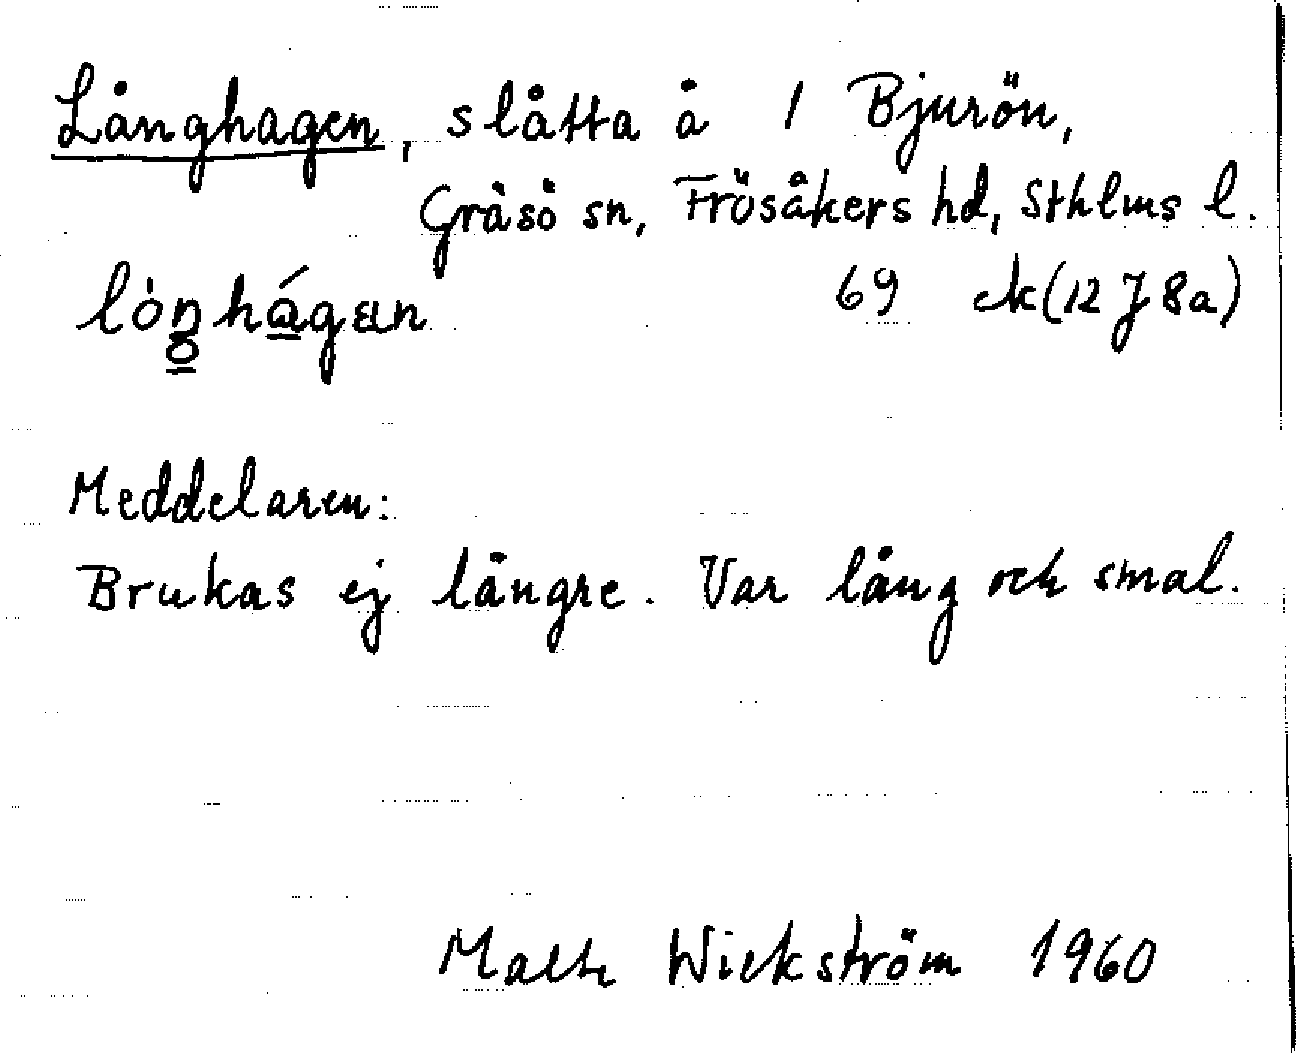 Långhagen, slåtta å 1 Bjurön,
Gräsö sn, Frösåkers hd, Sthlms l.
69 ek(12 J 8a)
Meddelaren:
Brukas ej längre. Var lång och smal.
Malte Wickström 1960